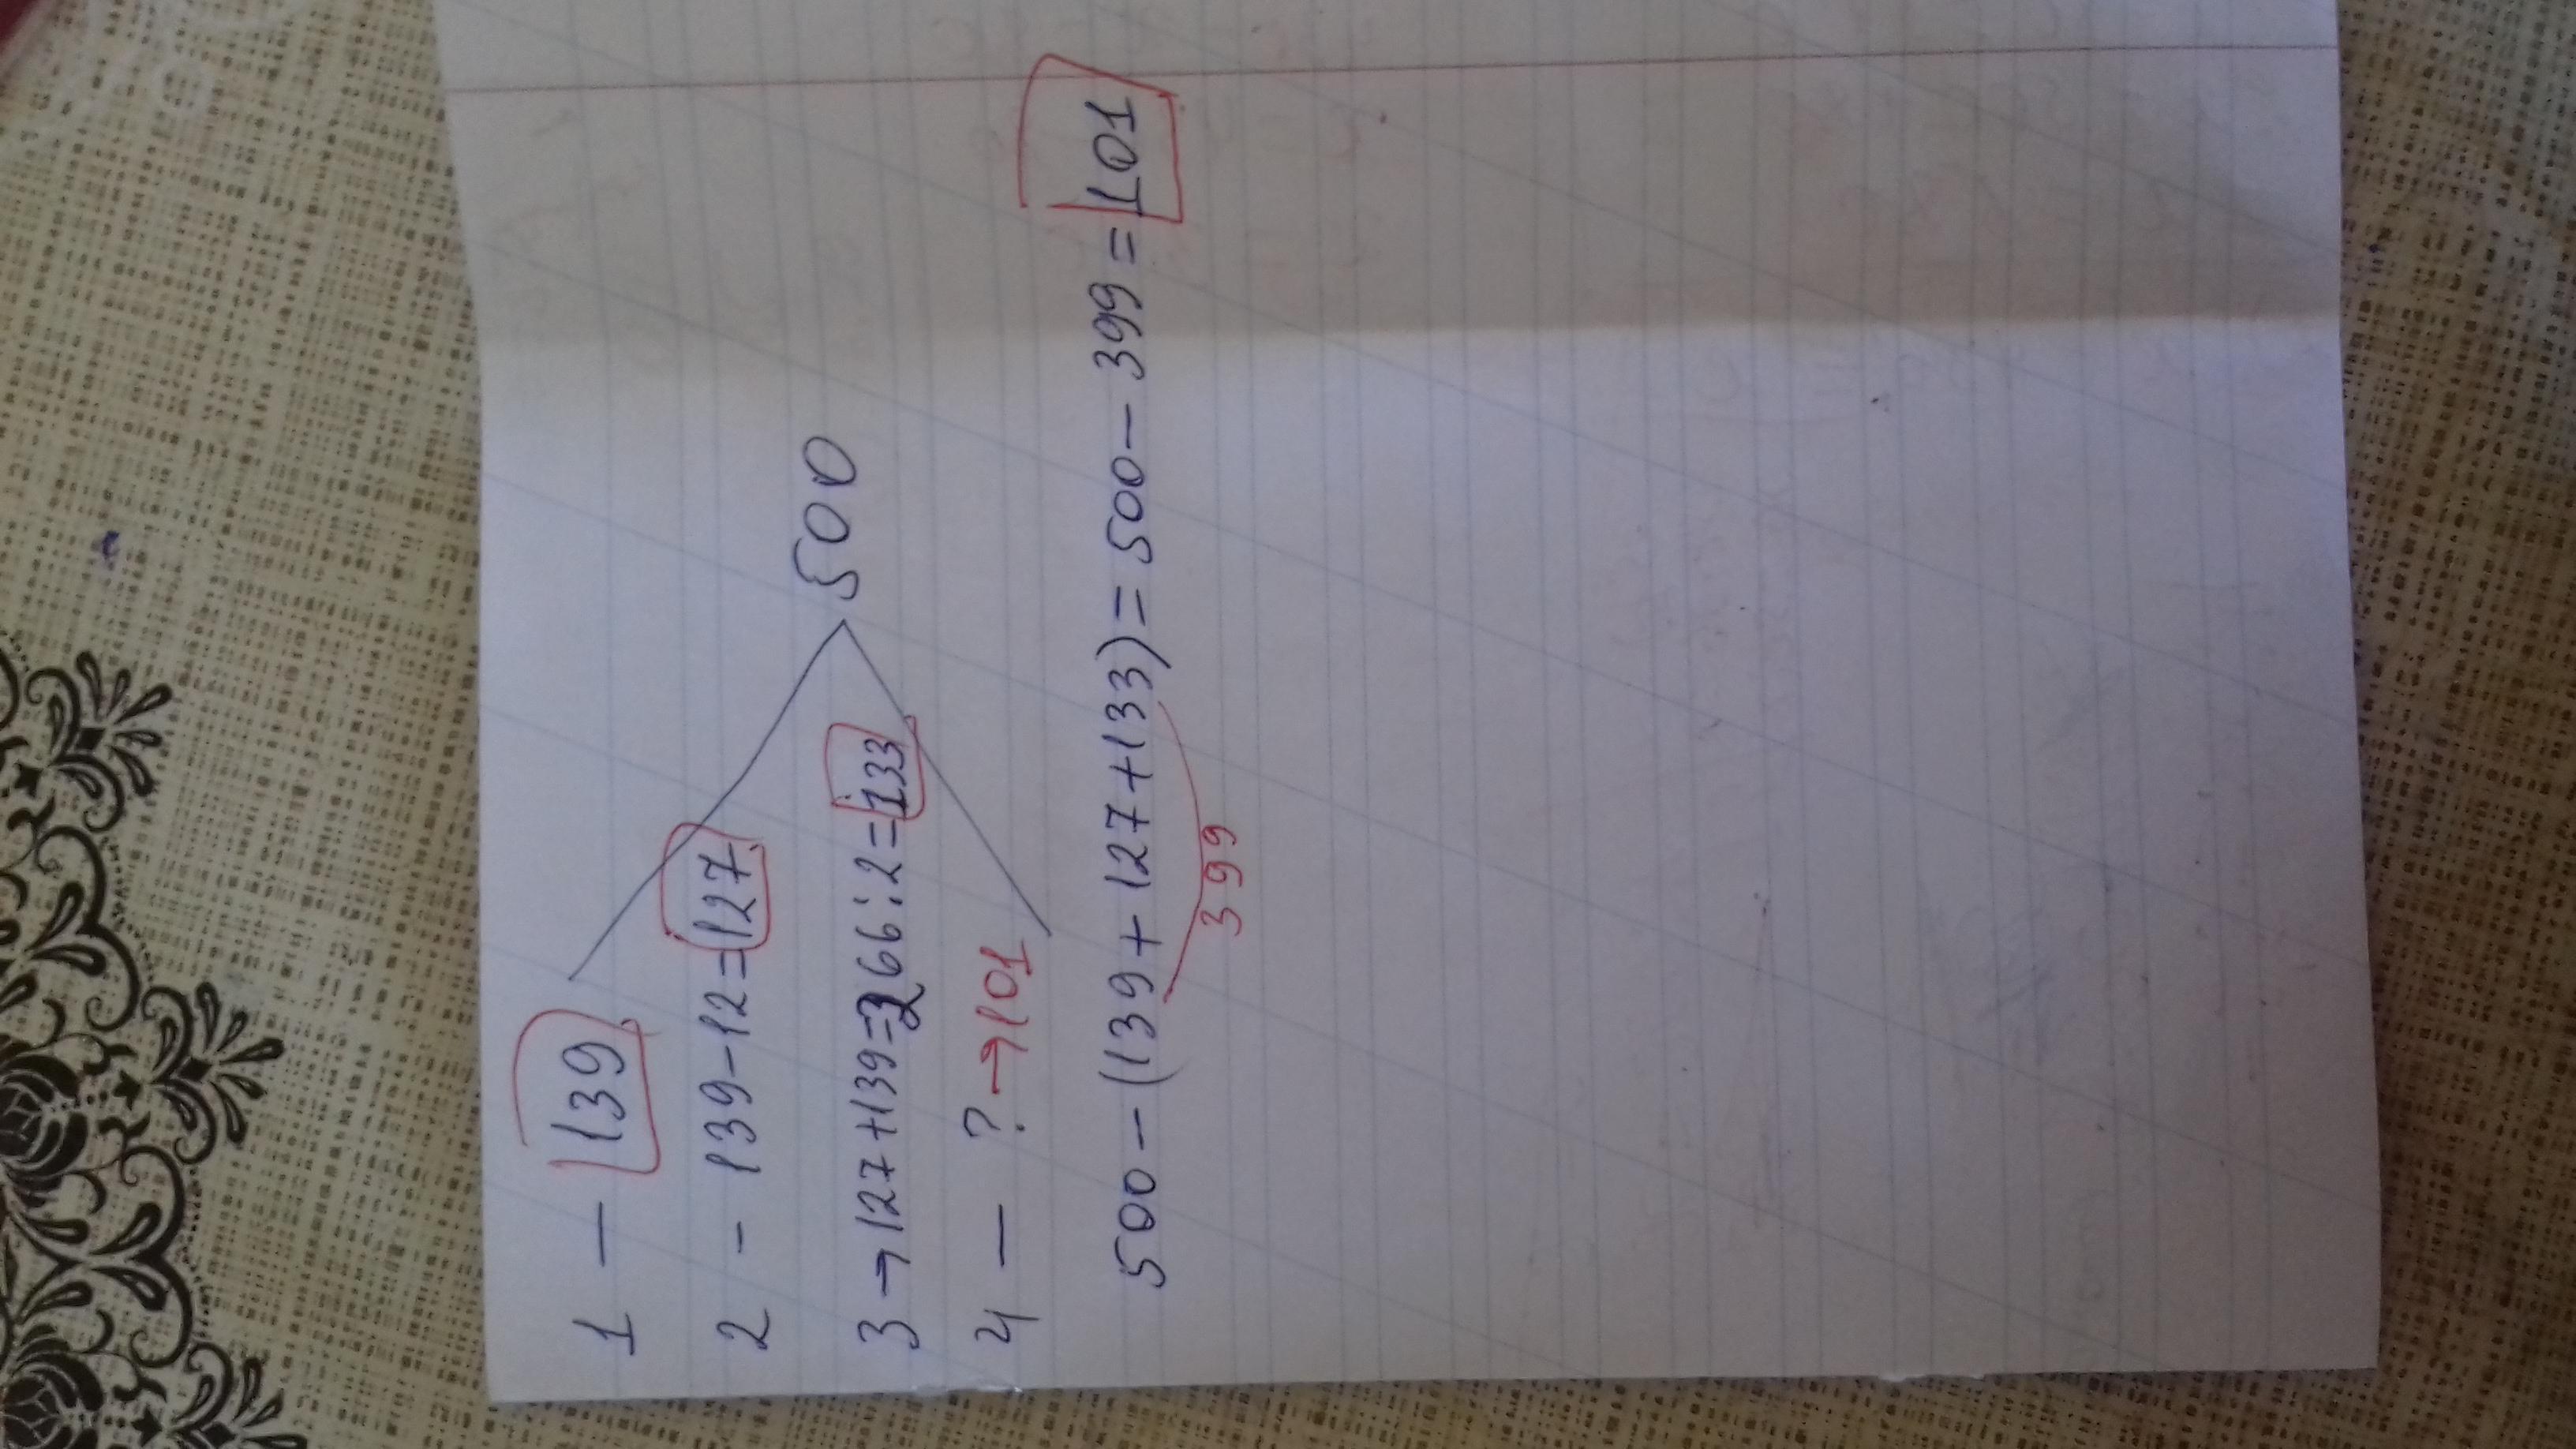 1 — 139
2 - 139-12=127
500
3→127+139=266:2=133
4 — ?→101
500-(139+127+133)=500-399=101
399